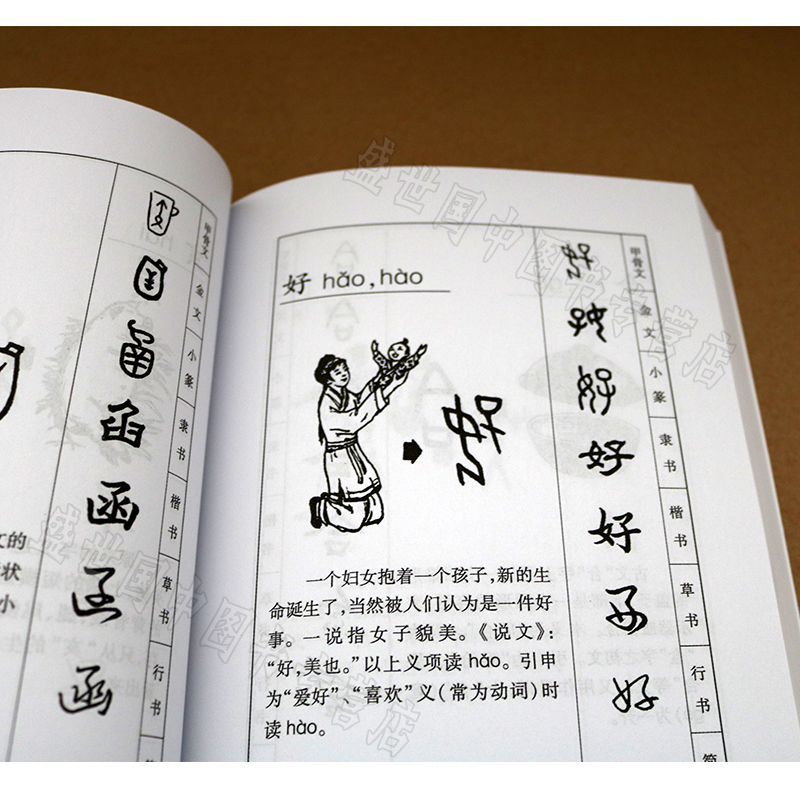 甲骨文
金文
小篆
隶书
楷书
草书
行书
函
函
函
的
状
小
好 hǎo,hào
一个妇女抱着一个孩子,新的生
命诞生了,当然被人们认为是一件好
事。一说指女子貌美。《说文》:
“好,美也。”以上义项读 hǎo。引申
为“爱好”、“喜欢”义(常为动词)时
读 hào。
好
好
好
好
好
好
好
甲骨文
金文
小篆
隶书
楷书
草书
行书
简
盛世国中图书专营店
盛世国中图书专营店